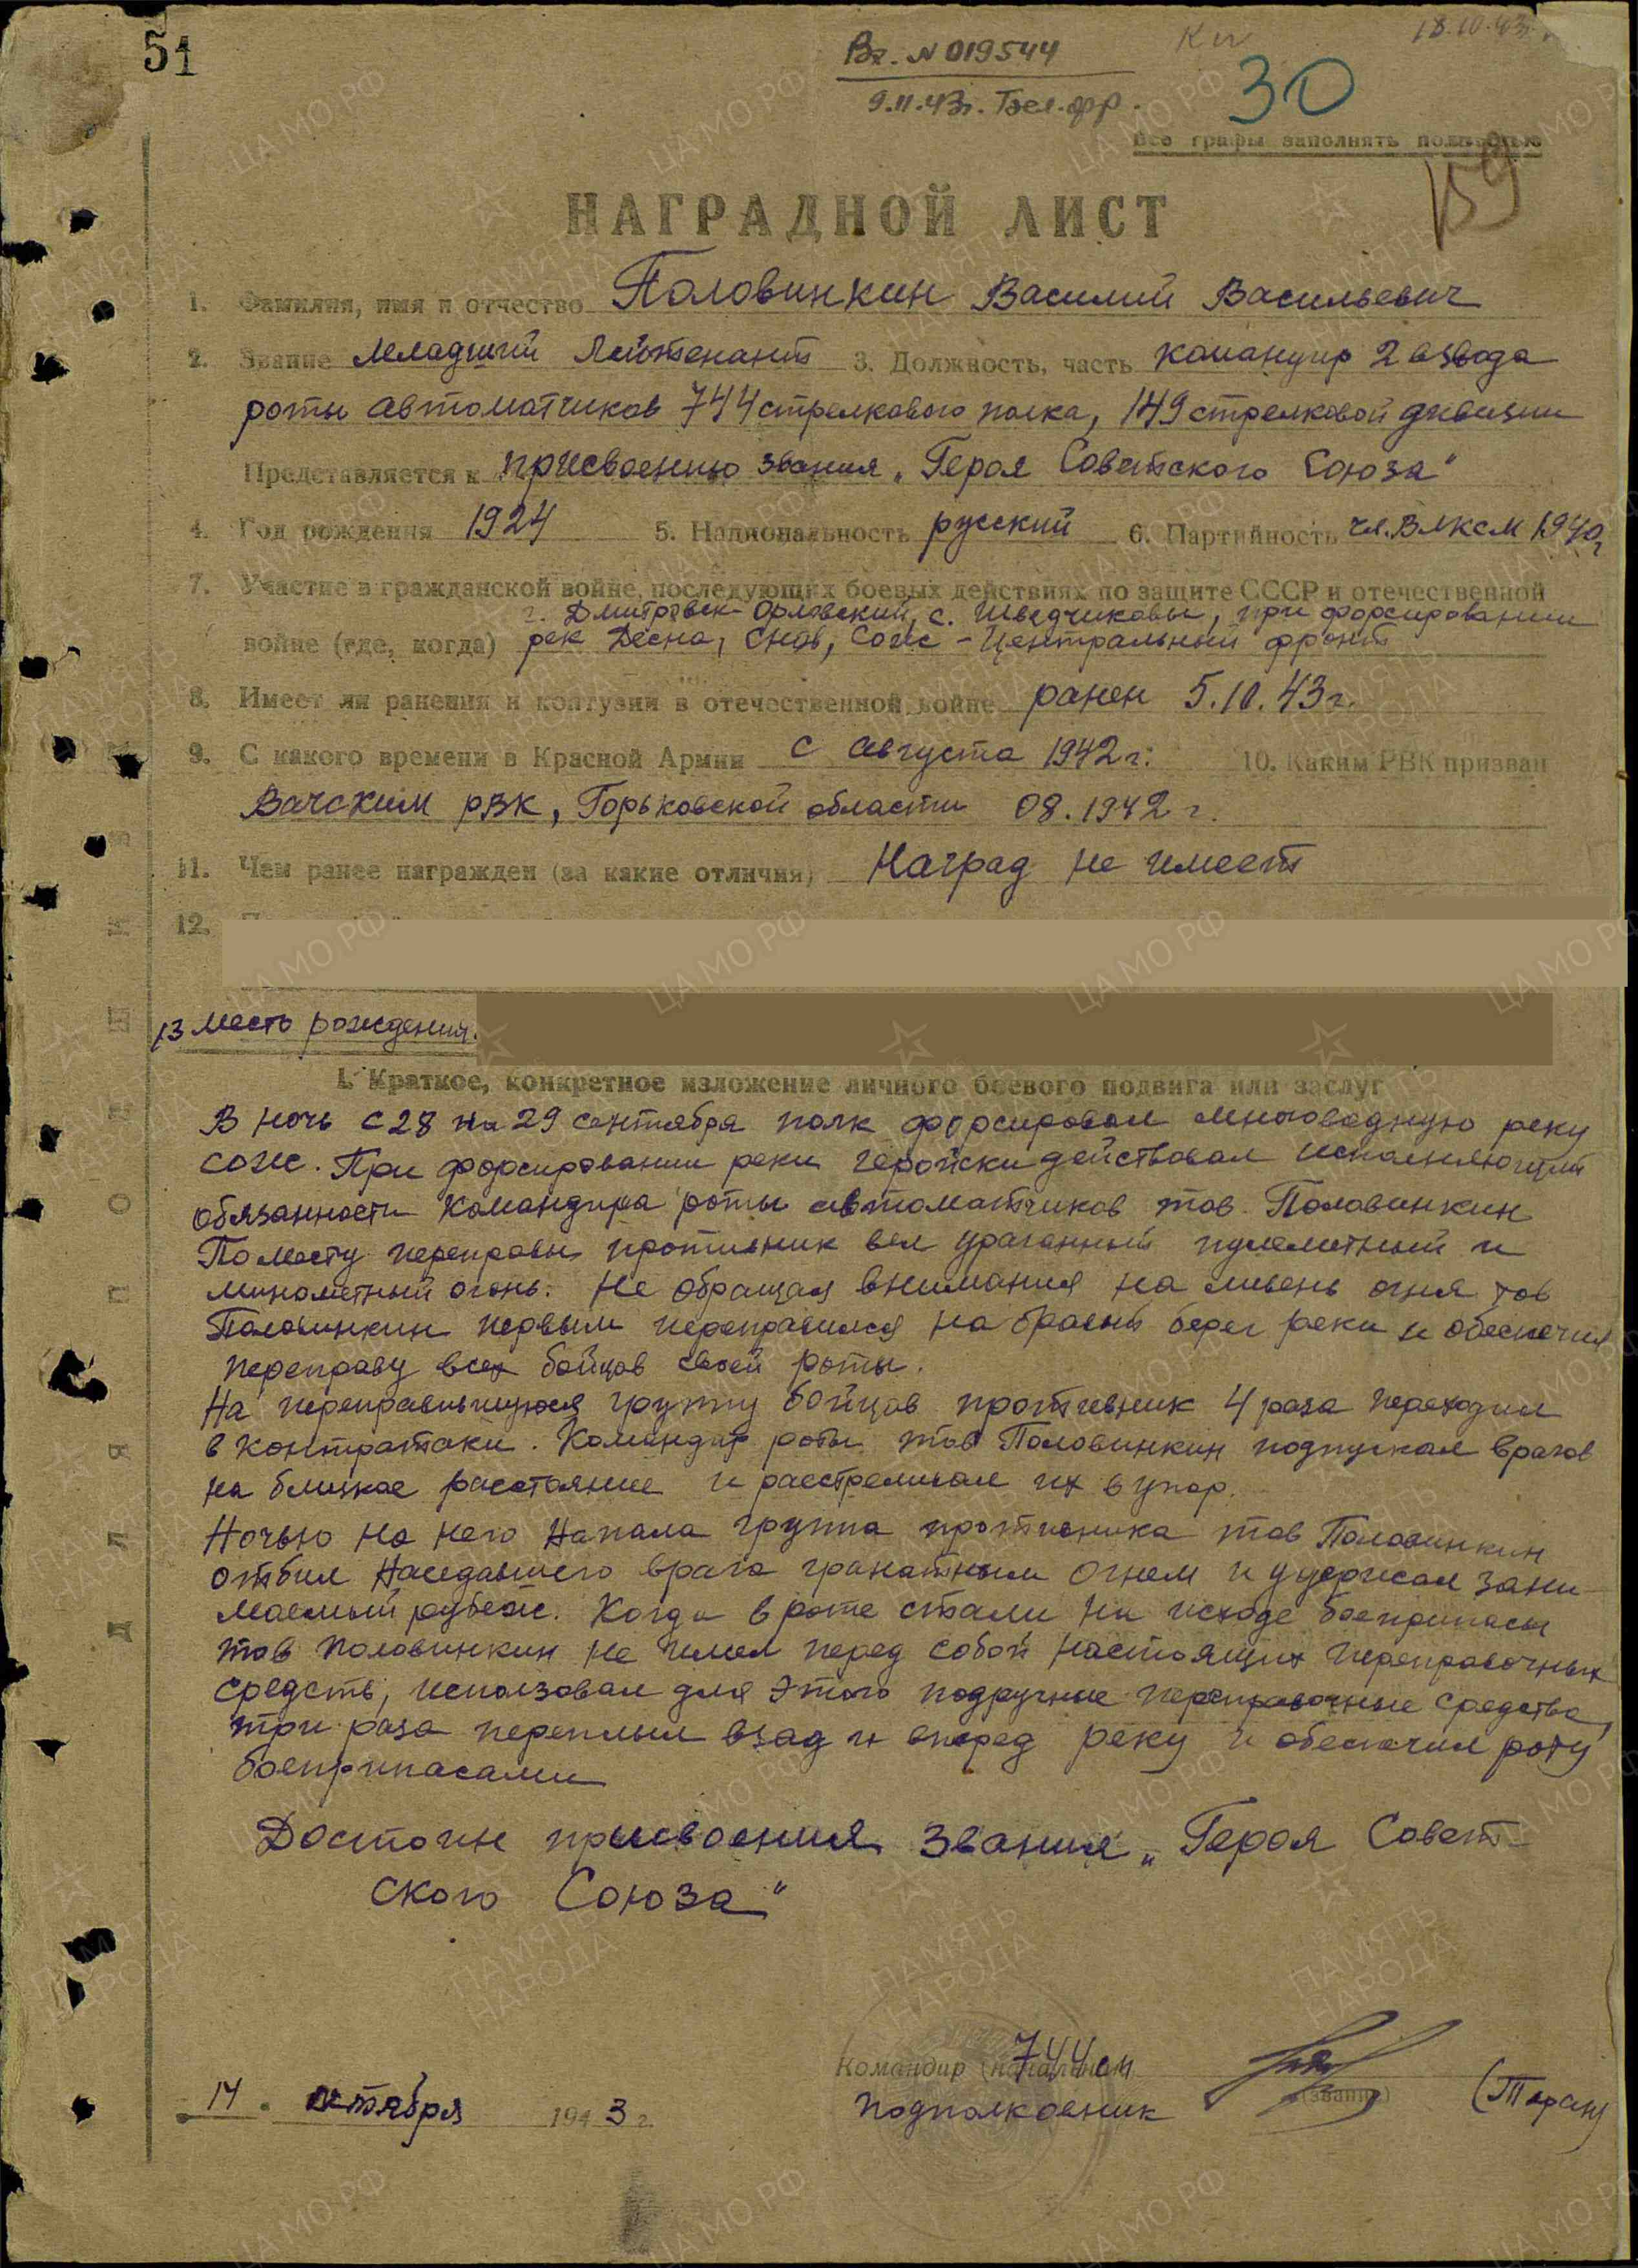 51
Вх. N 019544
9.11.43г. Бел.фр.
18.10.43г.
30
Все графы заполнять полностью
159
НАГРАДНОЙ ЛИСТ
1. Фамилия, имя и отчество Половинкин Василий Васильевич
2. Звание Младший Лейтенант 3. Должность, часть командир 2 взвода
роты автоматчиков 744 стрелкового полка, 149 стрелковой дивизии
Представляется к присвоению звания „Героя Советского Союза"
4. Год рождения 1924 5. Национальность русский 6. Партийность чл. ВЛКСМ 1940г
7. Участие в гражданской войне, последующих боевых действиях по защите СССР и отечественной
г. Дмитровск-Орловский, с. Шведчиковы, при форсировании
войне (где, когда) рек Десна, Снов, Сож - Центральный фронт
8. Имеет ли ранения и контузии в отечественной войне ранен 5.10.43г.
9. С какого времени в Красной Армии с августа 1942г. 10. Каким РВК призван
Вачским РВК, Горьковской области 08.1942 г.
11. Чем ранее награжден (за какие отличия) Наград не имеет
12.
13 Место рождения.
I. Краткое, конкретное изложение личного боевого подвига или заслуг
В ночь с 28 на 29 сентября полк форсировал многоводную реку
Сож. При форсировании реки геройски действовал исполняющий
обязанности командира роты автоматчиков тов. Половинкин
По месту переправы противник вел ураганный пулеметный и
минометный огонь. Не обращая внимания на ливень огня тов
Половинкин первым переправился на правый берег реки и обеспечил
переправу всех бойцов своей роты.
На переправившуюся группу бойцов противник 4 раза переходил
в контратаки. Командир роты тов Половинкин подпускал врагов
на близкое расстояние и расстреливал их в упор.
Ночью на него напала группа противника тов Половинкин
отбил наседавшего врага гранатным огнем и удержал зани-
маемый рубеж. Когда в роте стали на исходе боеприпасы
тов Половинкин не имел перед собой настоящих переправочных
средств, использовал для этого подручные переправочные средства,
три раза переплыл взад и вперед реку и обеспечил роту
боеприпасами
Достоин присвоения звания „Героя Совет-
ского Союза"
Командир (начальник) 744 сп
14 октября 1943 г.
Подполковник (звание) (Таран)
ДЛЯ ПОДШИВКИ
ЦА МО РФ
ПАМЯТЬ НАРОДА